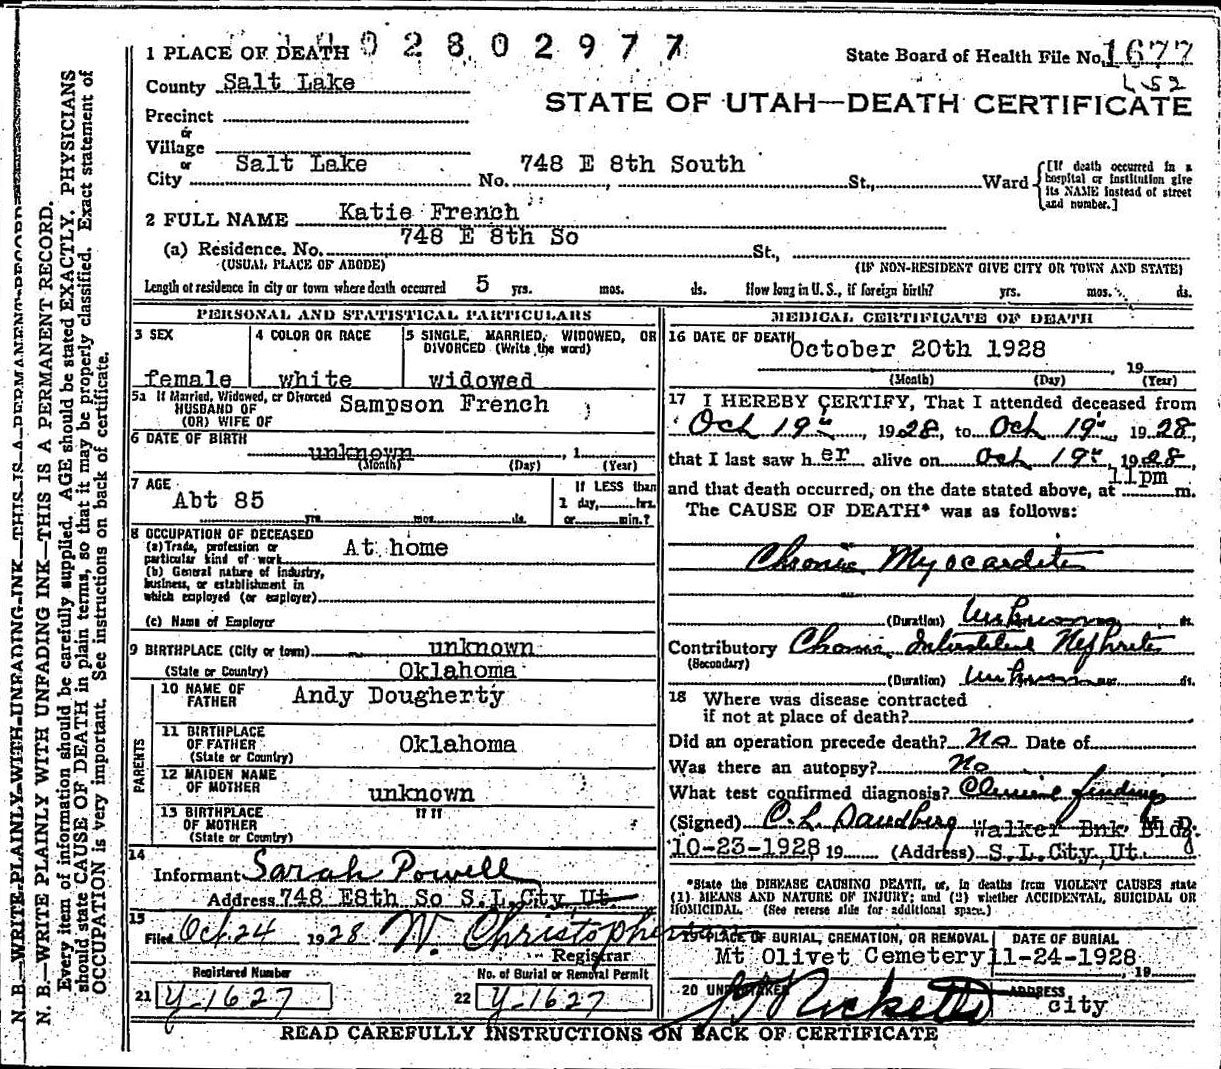 1 PLACE OF DEATH 0 2 8 0 2 9 7 7
State Board of Health File No. 1677
County Salt Lake
L52
STATE OF UTAH—DEATH CERTIFICATE
Precinct
or
Village
or
City Salt Lake No. 748 E 8th South St., Ward
[If death occurred in a
hospital or institution give
its NAME instead of street
and number.]
2 FULL NAME Katie French
(a) Residence. No. 748 E 8th So St.,
(USUAL PLACE OF ABODE) (IF NON-RESIDENT GIVE CITY OR TOWN AND STATE)
Length of residence in city or town where death occurred 5 yrs. mos. ds. How long in U. S., if foreign birth? yrs. mos. ds.
PERSONAL AND STATISTICAL PARTICULARS
3 SEX
female
4 COLOR OR RACE
white
5 SINGLE, MARRIED, WIDOWED, OR
DIVORCED (Write the word)
widowed
5a If Married, Widowed, or Divorced
HUSBAND OF
(OR) WIFE OF
Sampson French
6 DATE OF BIRTH
unknown , 1
(Month) (Day) (Year)
7 AGE
Abt 85
yrs. mos. ds.
If LESS than
1 day, hrs.
or min.?
8 OCCUPATION OF DECEASED
(a) Trade, profession or
particular kind of work At home
(b) General nature of industry,
business, or establishment in
which employed (or employer)
(c) Name of Employer
9 BIRTHPLACE (City or town) unknown
(State or Country) Oklahoma
PARENTS
10 NAME OF
FATHER
Andy Dougherty
11 BIRTHPLACE
OF FATHER
(State or Country)
Oklahoma
12 MAIDEN NAME
OF MOTHER
unknown
13 BIRTHPLACE
OF MOTHER
(State or Country)
" "
14
Informant Sarah Powell
Address 748 E8th So S.L.City Ut
15
Filed Oct 24 1928 W. Christopherson
Registrar
Registered Number
21 Y-1627
No. of Burial or Removal Permit
22 Y-1627
MEDICAL CERTIFICATE OF DEATH
16 DATE OF DEATH
October 20th 1928
, 19
(Month) (Day) (Year)
17 I HEREBY CERTIFY, That I attended deceased from
Oct 19th, 1928, to Oct 19th, 1928,
that I last saw her alive on Oct 19th, 1928,
and that death occurred, on the date stated above, at 11pm m.
The CAUSE OF DEATH* was as follows:
Chronic Myocarditis
(Duration) Unknown ds.
Contributory Chronic Interstitial Nephritis
(Secondary)
(Duration) Unknown ds.
18 Where was disease contracted
if not at place of death?
Did an operation precede death? No Date of
Was there an autopsy? No
What test confirmed diagnosis? Clinical findings
(Signed) C. L. Sandberg M. D.
Walker Bnk Bldg.
10-23-1928 19 (Address) S.L.City,Ut.
*State the DISEASE CAUSING DEATH, or, in deaths from VIOLENT CAUSES state
(1) MEANS AND NATURE OF INJURY; and (2) whether ACCIDENTAL, SUICIDAL OR
HOMICIDAL. (See reverse side for additional space.)
19 PLACE OF BURIAL, CREMATION, OR REMOVAL
Mt Olivet Cemetery
DATE OF BURIAL
11-24-1928
, 19
20 UNDERTAKER
Ricketts
ADDRESS
city
READ CAREFULLY INSTRUCTIONS ON BACK OF CERTIFICATE
N. B.—WRITE PLAINLY WITH UNFADING INK—THIS IS A PERMANENT RECORD
N. B.—WRITE PLAINLY WITH UNFADING INK—THIS IS A PERMANENT RECORD.
Every item of information should be carefully supplied. AGE should be stated EXACTLY. PHYSICIANS
should state CAUSE OF DEATH in plain terms, so that it may be properly classified. Exact statement of
OCCUPATION is very important. See instructions on back of certificate.